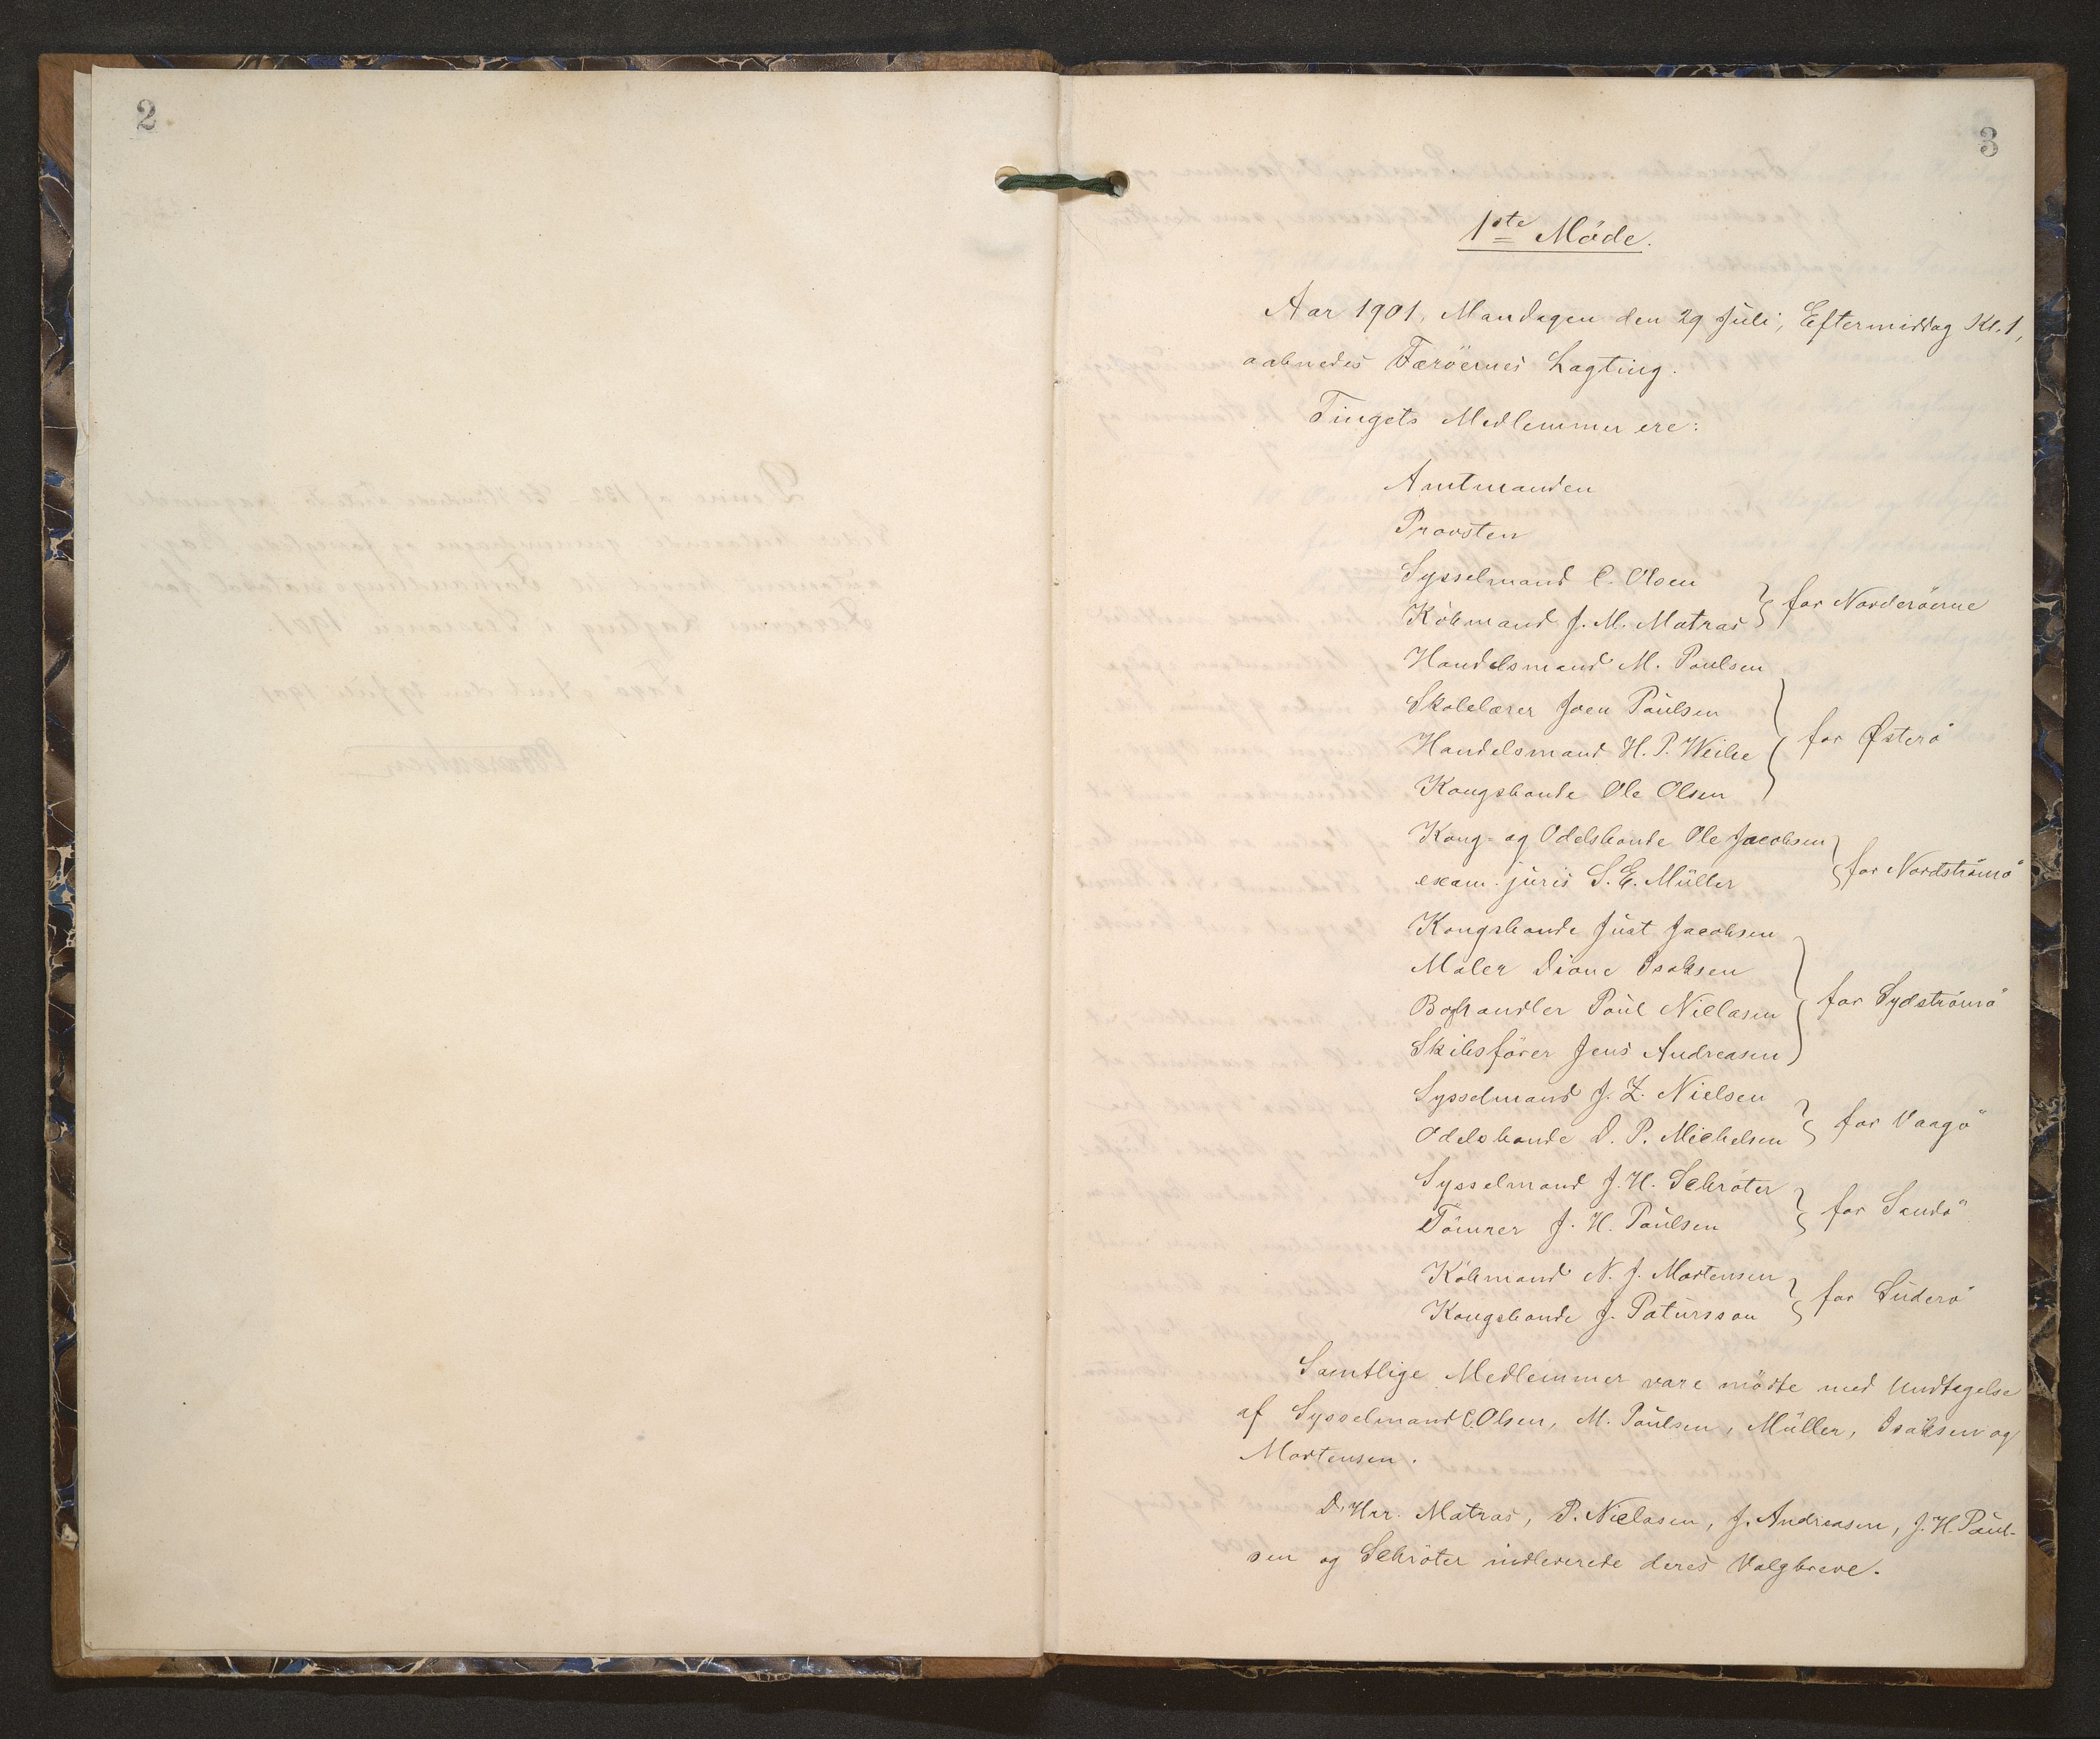 2
3
1ste Møde.
Aar 1901, Mandagen den 29 Juli, Eftermiddag Kl. 1,
aabnedes Færöernes Lagting.
Tingets Medlemmer ere:
Amtmanden
Provsten
Sysselmand C. Olsen
Köbmand J. M. Matras } for Norderöerne
Handelsmand M. Poulsen
Skolelærer Joen Poulsen
Handelsmand H. P. Weihe } for Østerö
Kongsbonde Ole Olsen
Kong- og Odelsbonde Ole Jacobsen
exam. juris S. E. Müller } for Nordströmö
Kongsbonde Just Jacobsen
Maler Dione Isaksen
Boghandler Poul Niclasen } for Sydströmö
Skibsförer Jens Andreasen
Sysselmand J. Z. Nielsen
Odelsbonde D. P. Michelsen } for Vaagö
Sysselmand J. H. Schröter
Tömrer J. H. Poulsen } for Sandö
Köbmand N. J. Mortensen
Kongsbonde J. Patursson } for Suderö
Samtlige Medlemmer vare mödte med Undtagelse
af Sysselmand C. Olsen, M. Poulsen, Müller, Isaksen og
Mortensen.
D'Hrr. Matras, P. Niclasen, J. Andreasen, J. H. Poul-
sen og Schröter indleverede deres Valgbreve.